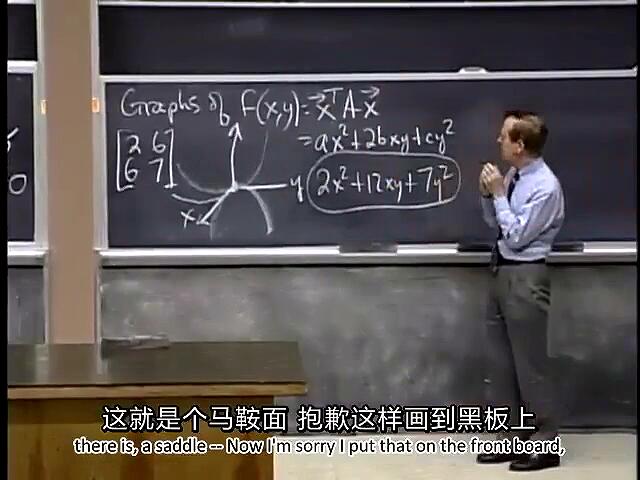 Graphs of f(x,y) = x⃗ᵀAx⃗
= ax²+2bxy+cy²
[2 6
6 7]
y
2x²+12xy+7y²
x
0
这就是个马鞍面 抱歉这样画到黑板上
there is, a saddle -- Now I'm sorry I put that on the front board,